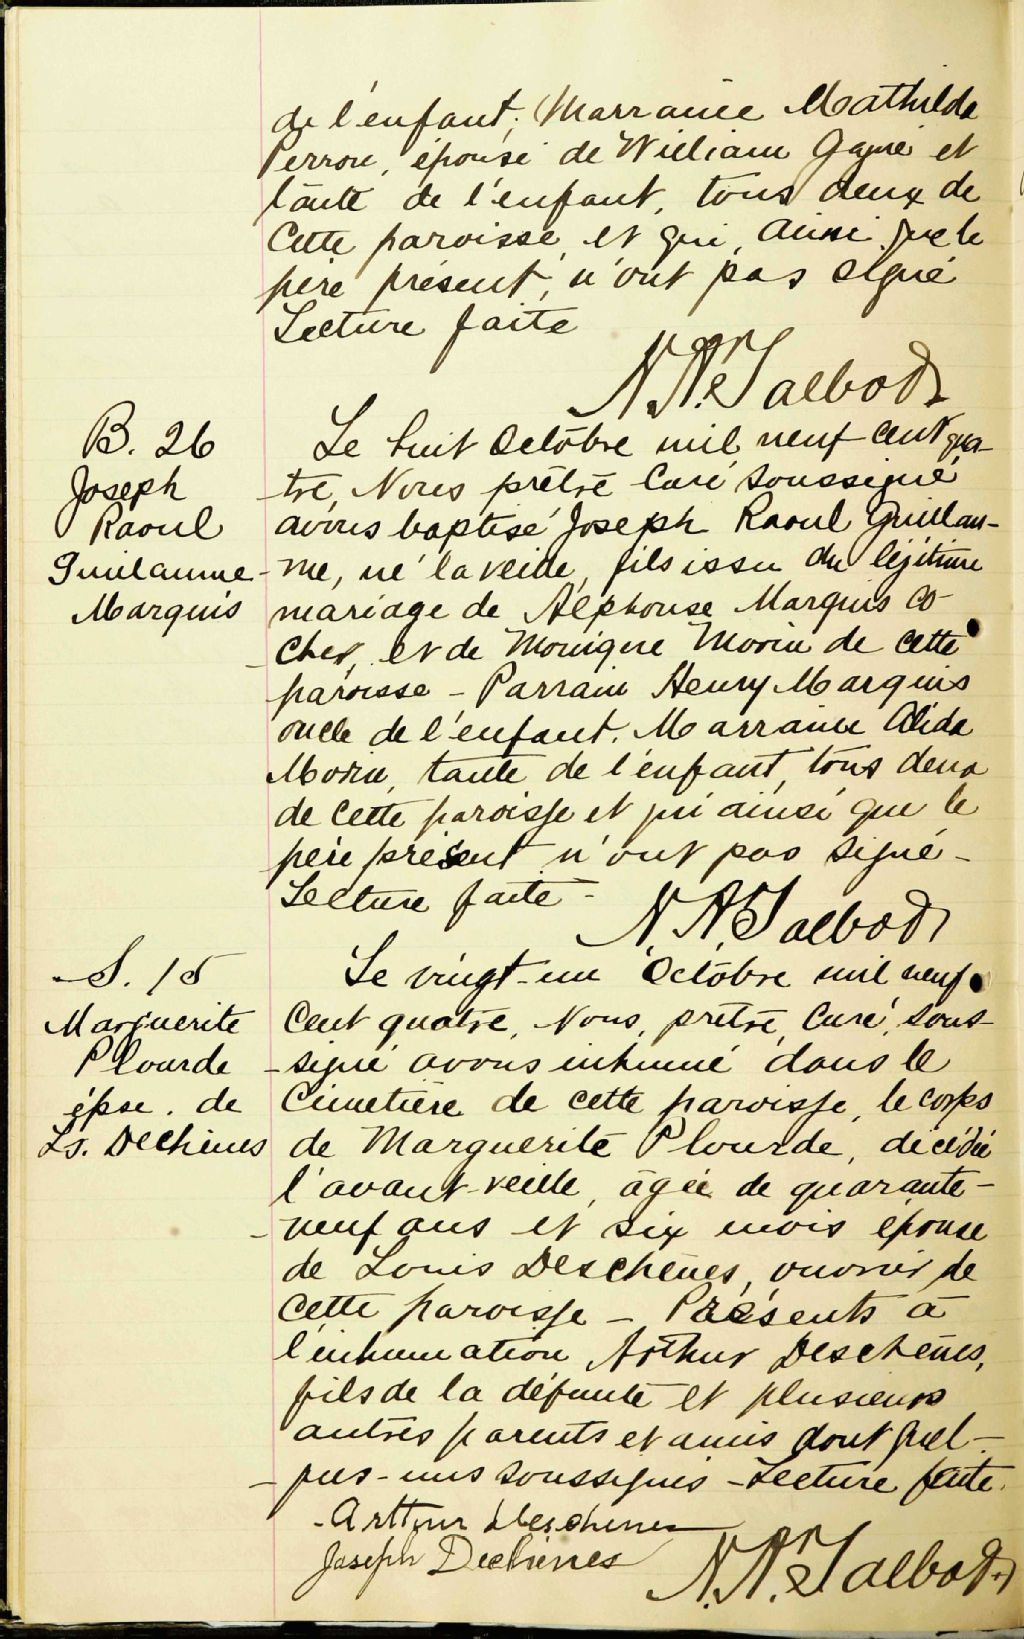 de l'enfant; Marraine Mathilda
Perron, épouse de William Gagné et
tante de l'enfant, tous deux de
Cette paroisse, et qui, ainsi que le
père présent, n'ont pas signé
Lecture faite
N. A. Talbot
B. 26
Joseph
Raoul
Guillaume
Marquis
Le huit Octobre mil neuf cent qua-
tre, Nous prêtre Curé soussigné
avons baptisé Joseph Raoul Guillau-
me, né la veille, fils issu du légitime
mariage de Alphonse Marquis co-
cher, et de Monique Morin de cette
paroisse - Parrain Henry Marquis
oncle de l'enfant. Marraine Alida
Morin, tante de l'enfant, tous deux
de cette paroisse et qui ainsi que le
père présent n'ont pas signé -
Lecture faite -
N. A. Talbot
S. 15
Marguerite
Plourde
épse. de
Ls. Dechênes
Le vingt-un Octobre mil neuf
Cent quatre, Nous, prêtre, Curé, sous-
signé avons inhumé dans le
Cimetière de cette paroisse, le corps
de Marguerite Plourde, décédée
l'avant-veille, âgée de quarante-
neuf ans et six mois épouse
de Louis Deschênes, ouvrier de
cette paroisse - Présents à
l'inhumation Arthur Deschênes,
fils de la défunte et plusieurs
autres parents et amis dont quel-
ques-uns soussignés - Lecture faite.
Artthur Deschenes
Joseph Dechênes
N. A. Talbot